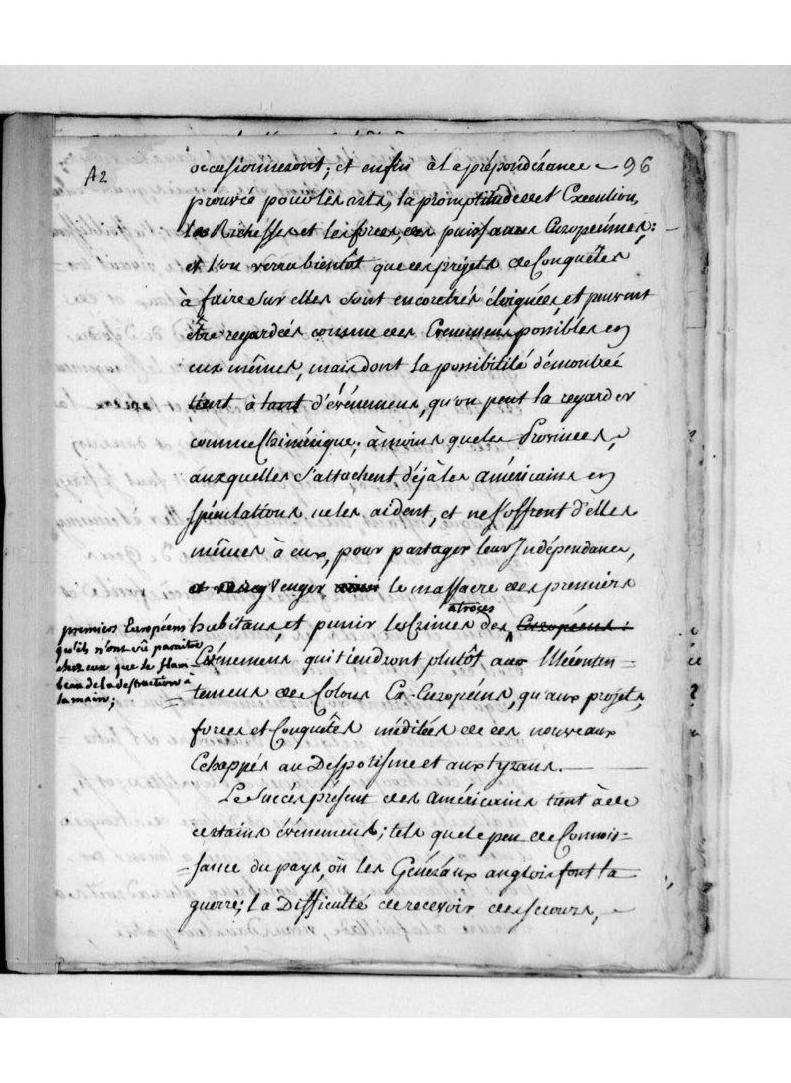 A2
96
occasionneront; et enfin à la préponderance
prouvée pour les arts, la promptitude d'Execution,
les Richesses et les forces, des puissances Européenes;
et l'on verra bientôt que ces projets de Conquêtes
à faire sur elles sont encore très éloignées, et peuvent
être regardées comme des Evenemens possibles en
eux mêmes, mais dont la possibilité démontrée
tient à tant d'événemens, qu'on peut la regarder
comme Chimérique; à moins que les Provinces,
auxquelles s'attachent déjà les américains en
spéculations ne les aident, et ne s'offrent d'elles
mêmes à eux, pour partager leur Indépendance,
et Venger le massacre des premiers
habitans, et punir les Crimes atroces des Européens:
premiers Européens
qu'ils n'ont vû paraitre
chez eux que le flam-
beau de la destruction à
la main;
Evénemens qui tiendront plutôt aux Mécontен-
temens de Colons Ex-Européens, qu'aux projets,
forces et Conquêtes méditées de ces nouveaux
Echappés au Despotisme et aux tyrans.
Le Succès présent des américains tient à de
certains événemens; tels que le peu de Connois-
sance du pays, où les Généraux anglois font la
guerre; la Difficulté de recevoir des secours,